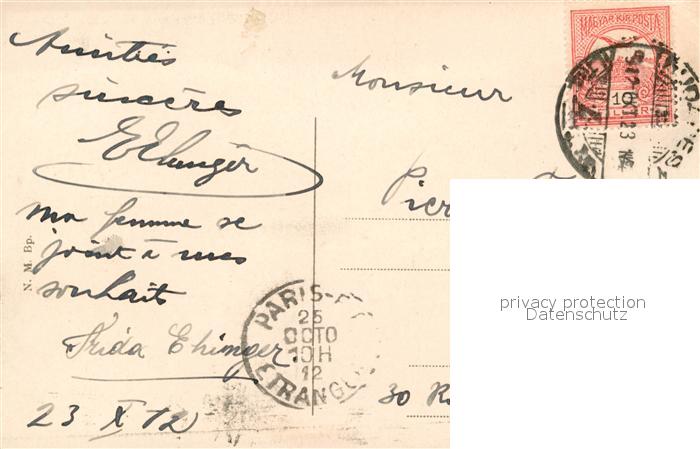 Amitiés
sincères
EEhinger
ma femme se
joint à mes
souhaits
Frida Ehinger
23 X 12
N. M. Bp.
Monsieur
30 R
MAGYAR KIR. POSTA
10
PARIS-
25
OCTO
10H
12
ETRANG
privacy protection
Datenschutz